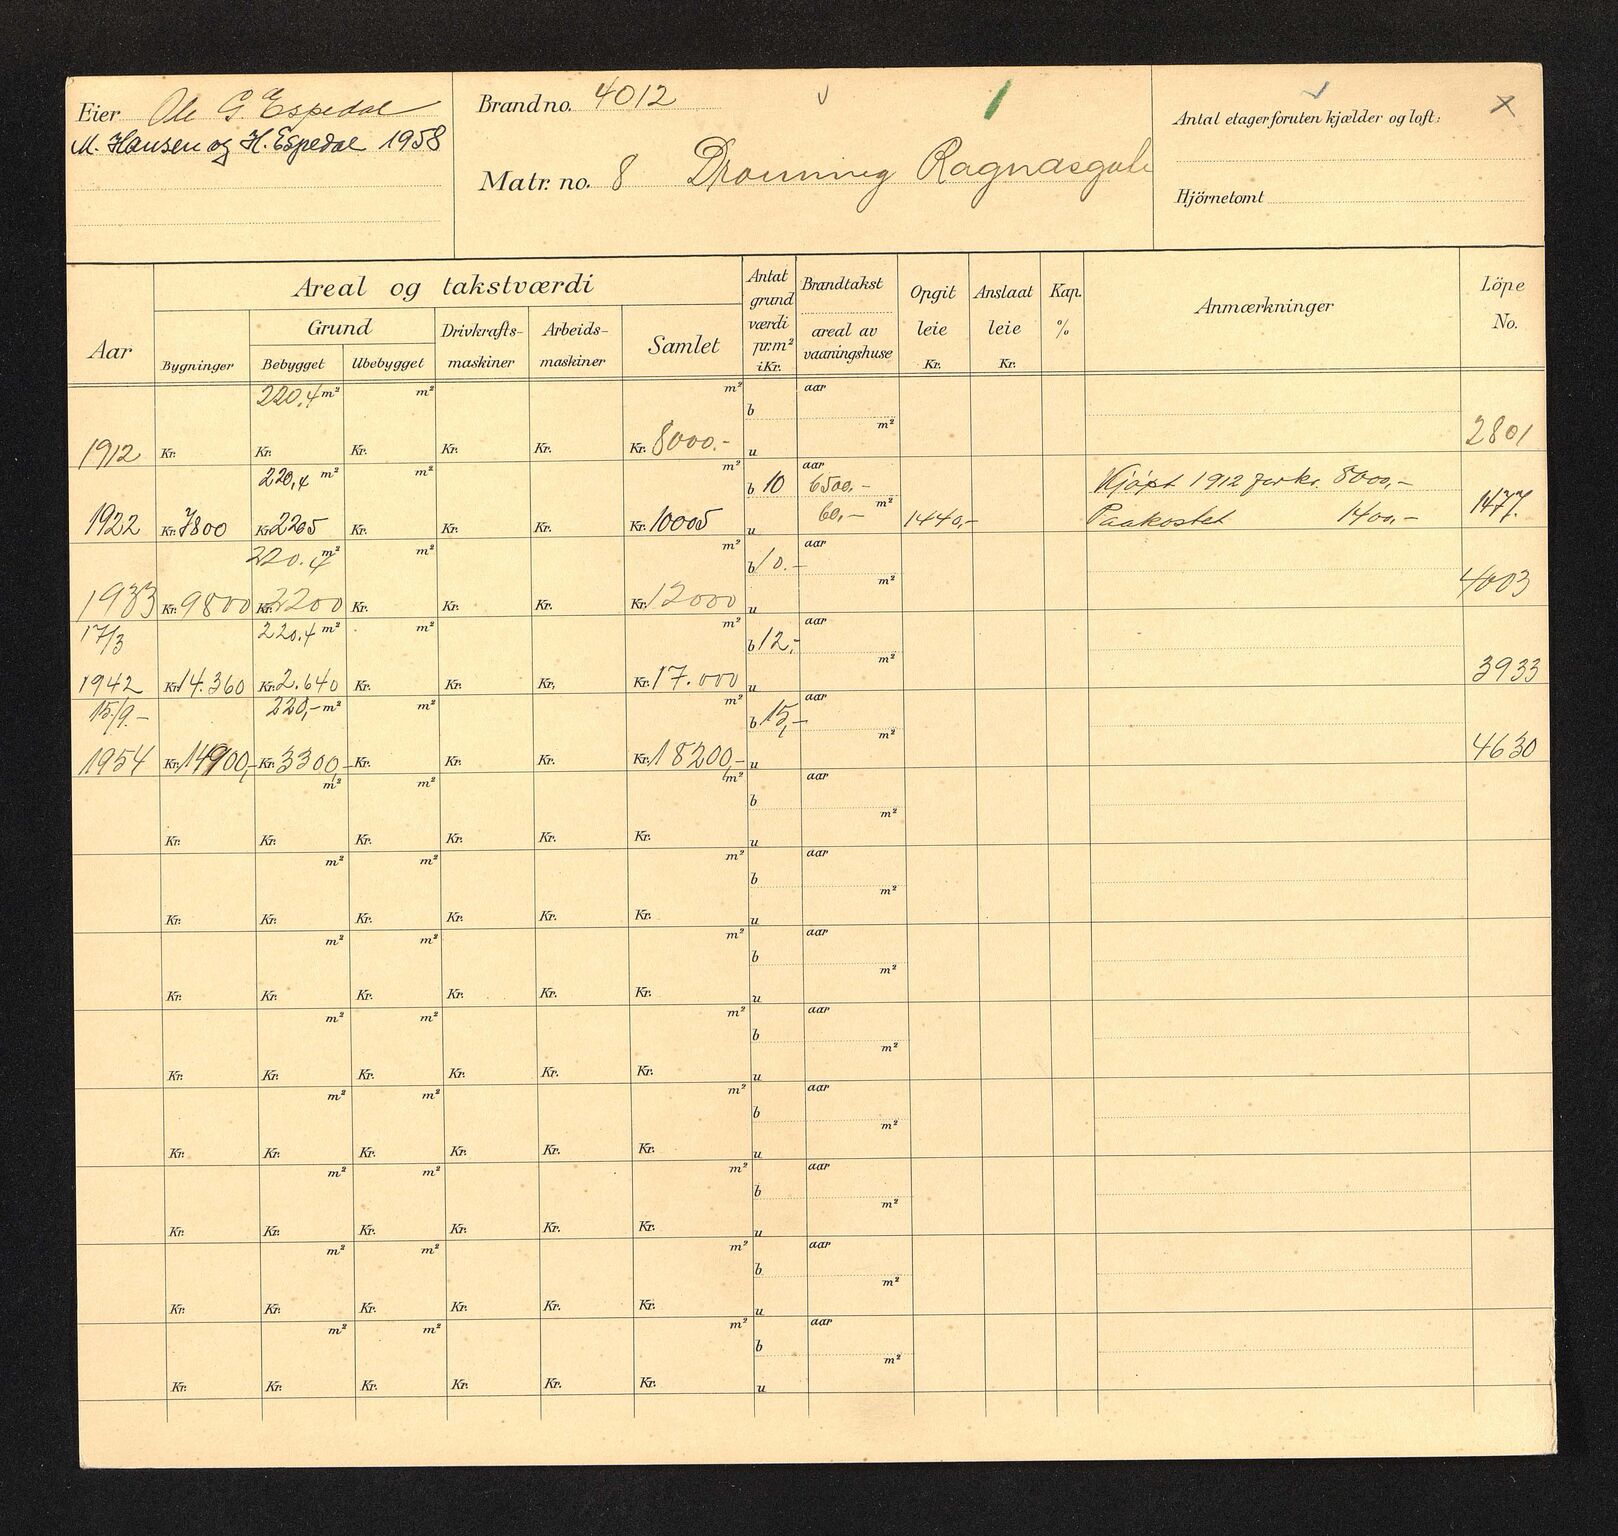 Eier Ole G. Espedal
M. Hansen og H. Espedal 1958
Brand no. 4012
Matr. no. 8 Dronning Ragnasgate
Antal etager foruten kjælder og loft:
Hjörnetomt
Aar
Areal og takstværdi
Bygninger
Grund
Bebygget Ubebygget
Drivkrafts-
maskiner
Arbeids-
maskiner
Samlet
Antat
grund
værdi
pr.m²
i Kr.
Brandtakst
areal av
vaaningshuse
Opgit
leie
Kr.
Anslaat
leie
Kr.
Kap.
%
Anmærkninger
Löpe
No.
220.4 m² m² m² b aar m²
1912 Kr. Kr. Kr. Kr. Kr. Kr. 8000.- u 2801
220,4 m² m² m² b 10 aar 6500,- Kjøpt 1912 for kr. 8000,-
1922 Kr. 7800 Kr. 2205 Kr. Kr. Kr. Kr. 10005 u 60,- m² 1440,- Paakostet 1400,- 1477.
220.4 m² m² m² b 10.- aar m²
1933 Kr. 9800 Kr. 2200 Kr. Kr. Kr. Kr. 12000 u 4003
17/3 220.4 m² m² m² b 12,- aar m²
1942 Kr. 14.360 Kr. 2.640 Kr. Kr. Kr. Kr. 17.000 u 3933
15/9.- 220,- m² m² m² b 15,- aar m²
1954 Kr. 14900,- Kr. 3300,- Kr. Kr. Kr. Kr. 18200,- u 4630
m² m² m² b aar m²
Kr. Kr. Kr. Kr. Kr. Kr. u
m² m² m² b aar m²
Kr. Kr. Kr. Kr. Kr. Kr. u
m² m² m² b aar m²
Kr. Kr. Kr. Kr. Kr. Kr. u
m² m² m² b aar m²
Kr. Kr. Kr. Kr. Kr. Kr. u
m² m² m² b aar m²
Kr. Kr. Kr. Kr. Kr. Kr. u
m² m² m² b aar m²
Kr. Kr. Kr. Kr. Kr. Kr. u
m² m² m² b aar m²
Kr. Kr. Kr. Kr. Kr. Kr. u
m² m² m² b aar m²
Kr. Kr. Kr. Kr. Kr. Kr. u